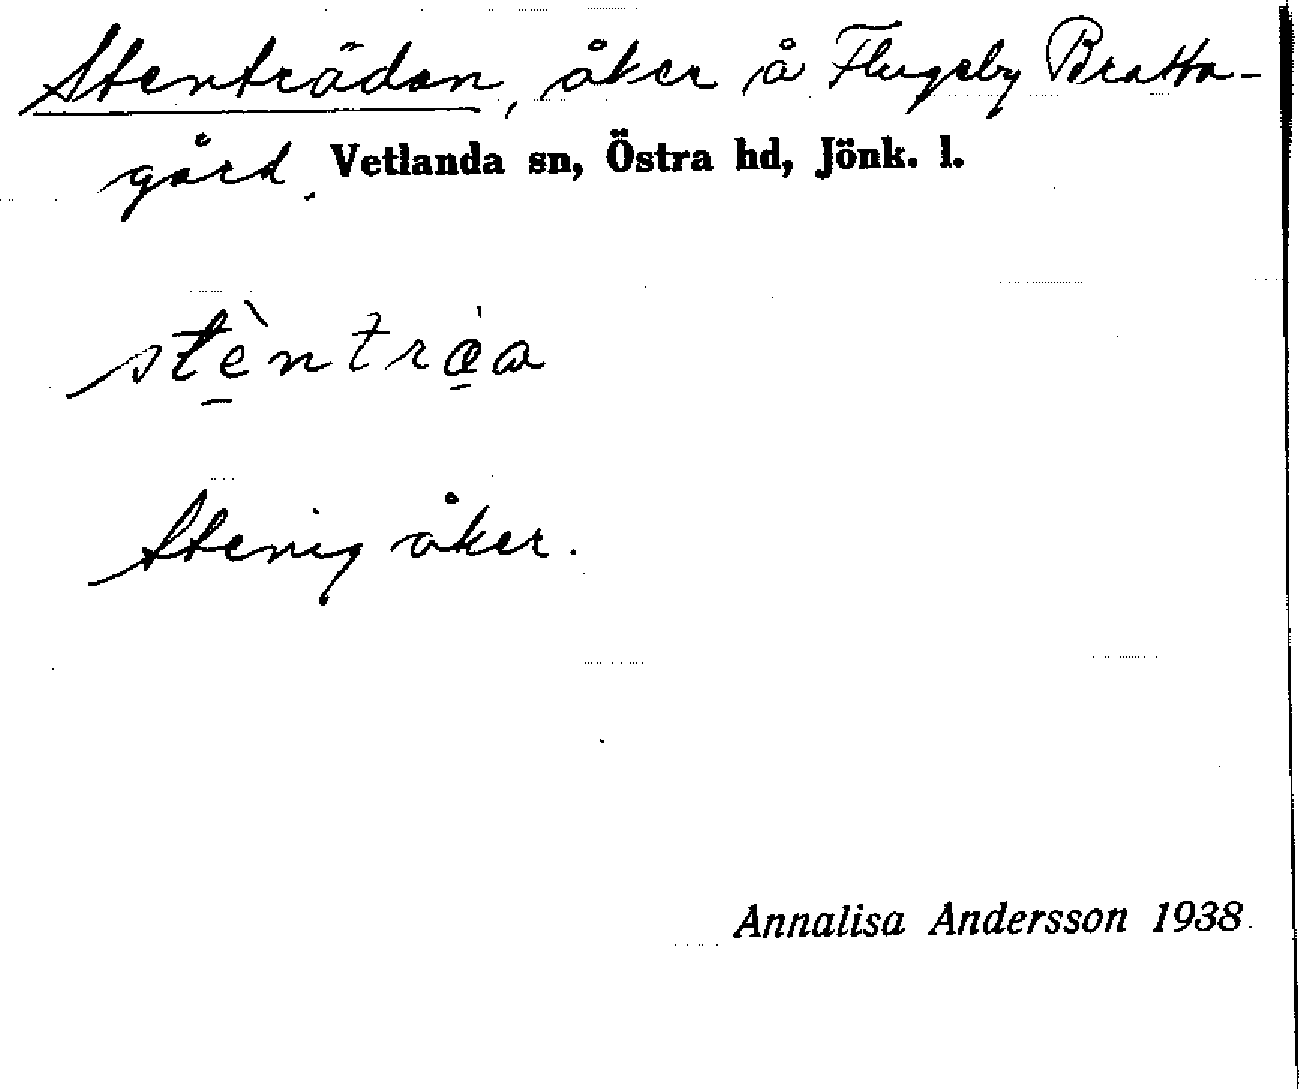 Stenträdan, åker å Flugeby Bratta-
gård. Vetlanda sn, Östra hd, Jönk. l.
stèntràa
Stenig åker.
Annalisa Andersson 1938